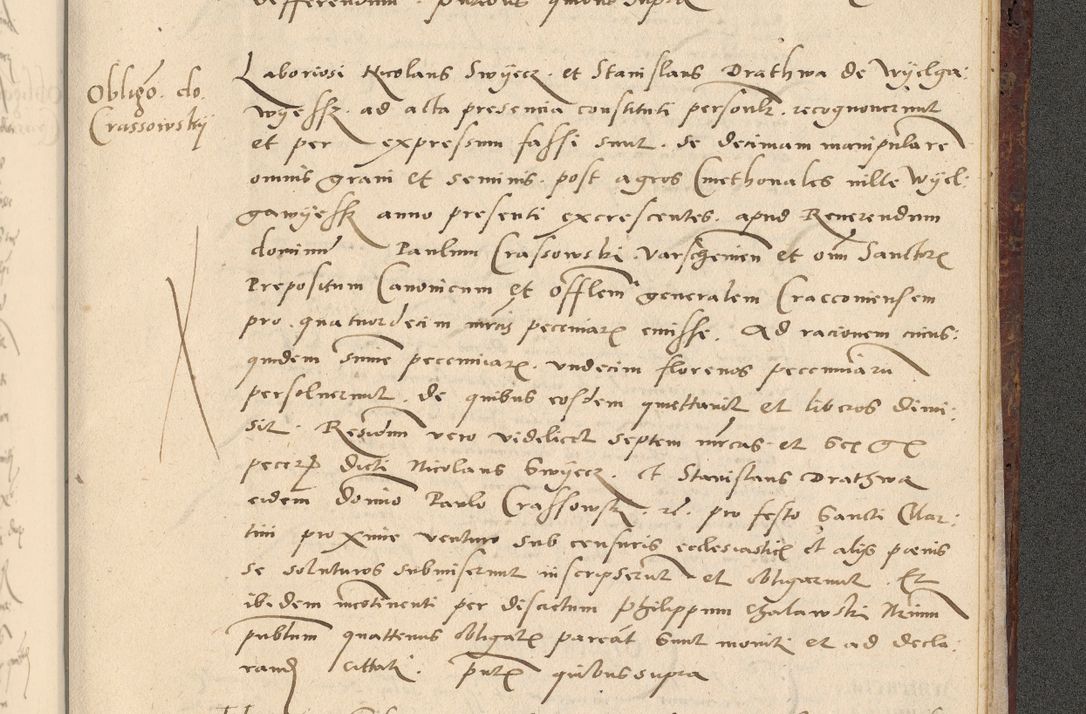 Obligo. do.
Crassowskÿ
Laboriosi Nicolaus Swÿecz. et Stanislaus Drathwa de Wÿelga:
wÿessk. ad acta presencia constituti personlr. recognoverunt
et per expressum fassi sunt. se decimam manipularem
omnis grani et seminis. post agros Cmethonales ville Wÿel:
gawÿessk anno presenti excrescentes. apud Reverendum
dominum Paulum Crassowski. Varschevien et omm Sanctor
Prepositum Canonicum et offlem generalem Cracoviensem
pro. quatuordecim mrcis pecuniar emisse. Ad racionem cuius:
quidem summe pecuniar. undecim florenos pecuniarum
persolverunt. de quibus eosdem quettavit et liberos dimi:
sit. Residuum vero videlicet septem mrcas et
dicti Nicolaus Swÿecz. et Stanislaus Drathwa
eidem domino Paulo Crassowsk. pro festo Sancti Mar:
tini proxime venturo sub censuris ecclesiastic et alÿs poenis
se soluturos submiserunt inscripserunt et obligarunt. Et
ibidem incontinenti per discretum Philippum Chalawski Nrium
publum quattenus obligatr pareat sunt moniti et ad decla:
rand cittati. pntr quibus supra